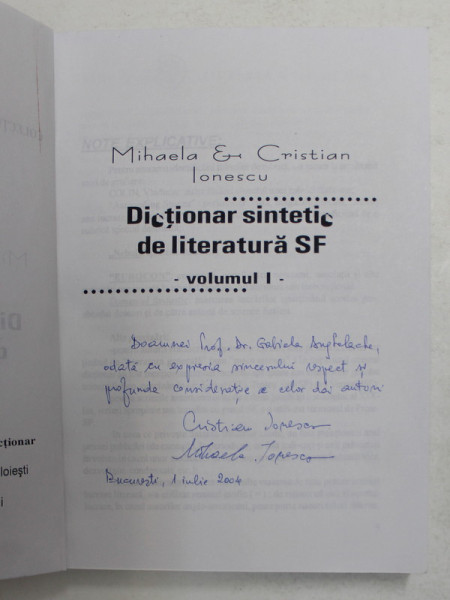 Mihaela & Cristian
Ionescu
Dicționar sintetic
de literatură SF
- volumul I -
Doamnei Prof. Dr. Gabriela Anghelache,
odată cu expresia sincerului respect și
profunda considerație a celor doi autori
Cristian Ionescu
Mihaela Ionescu
București, 1 iulie 2004
NOTE EXPLICATIVE:
cționar
loiești
i